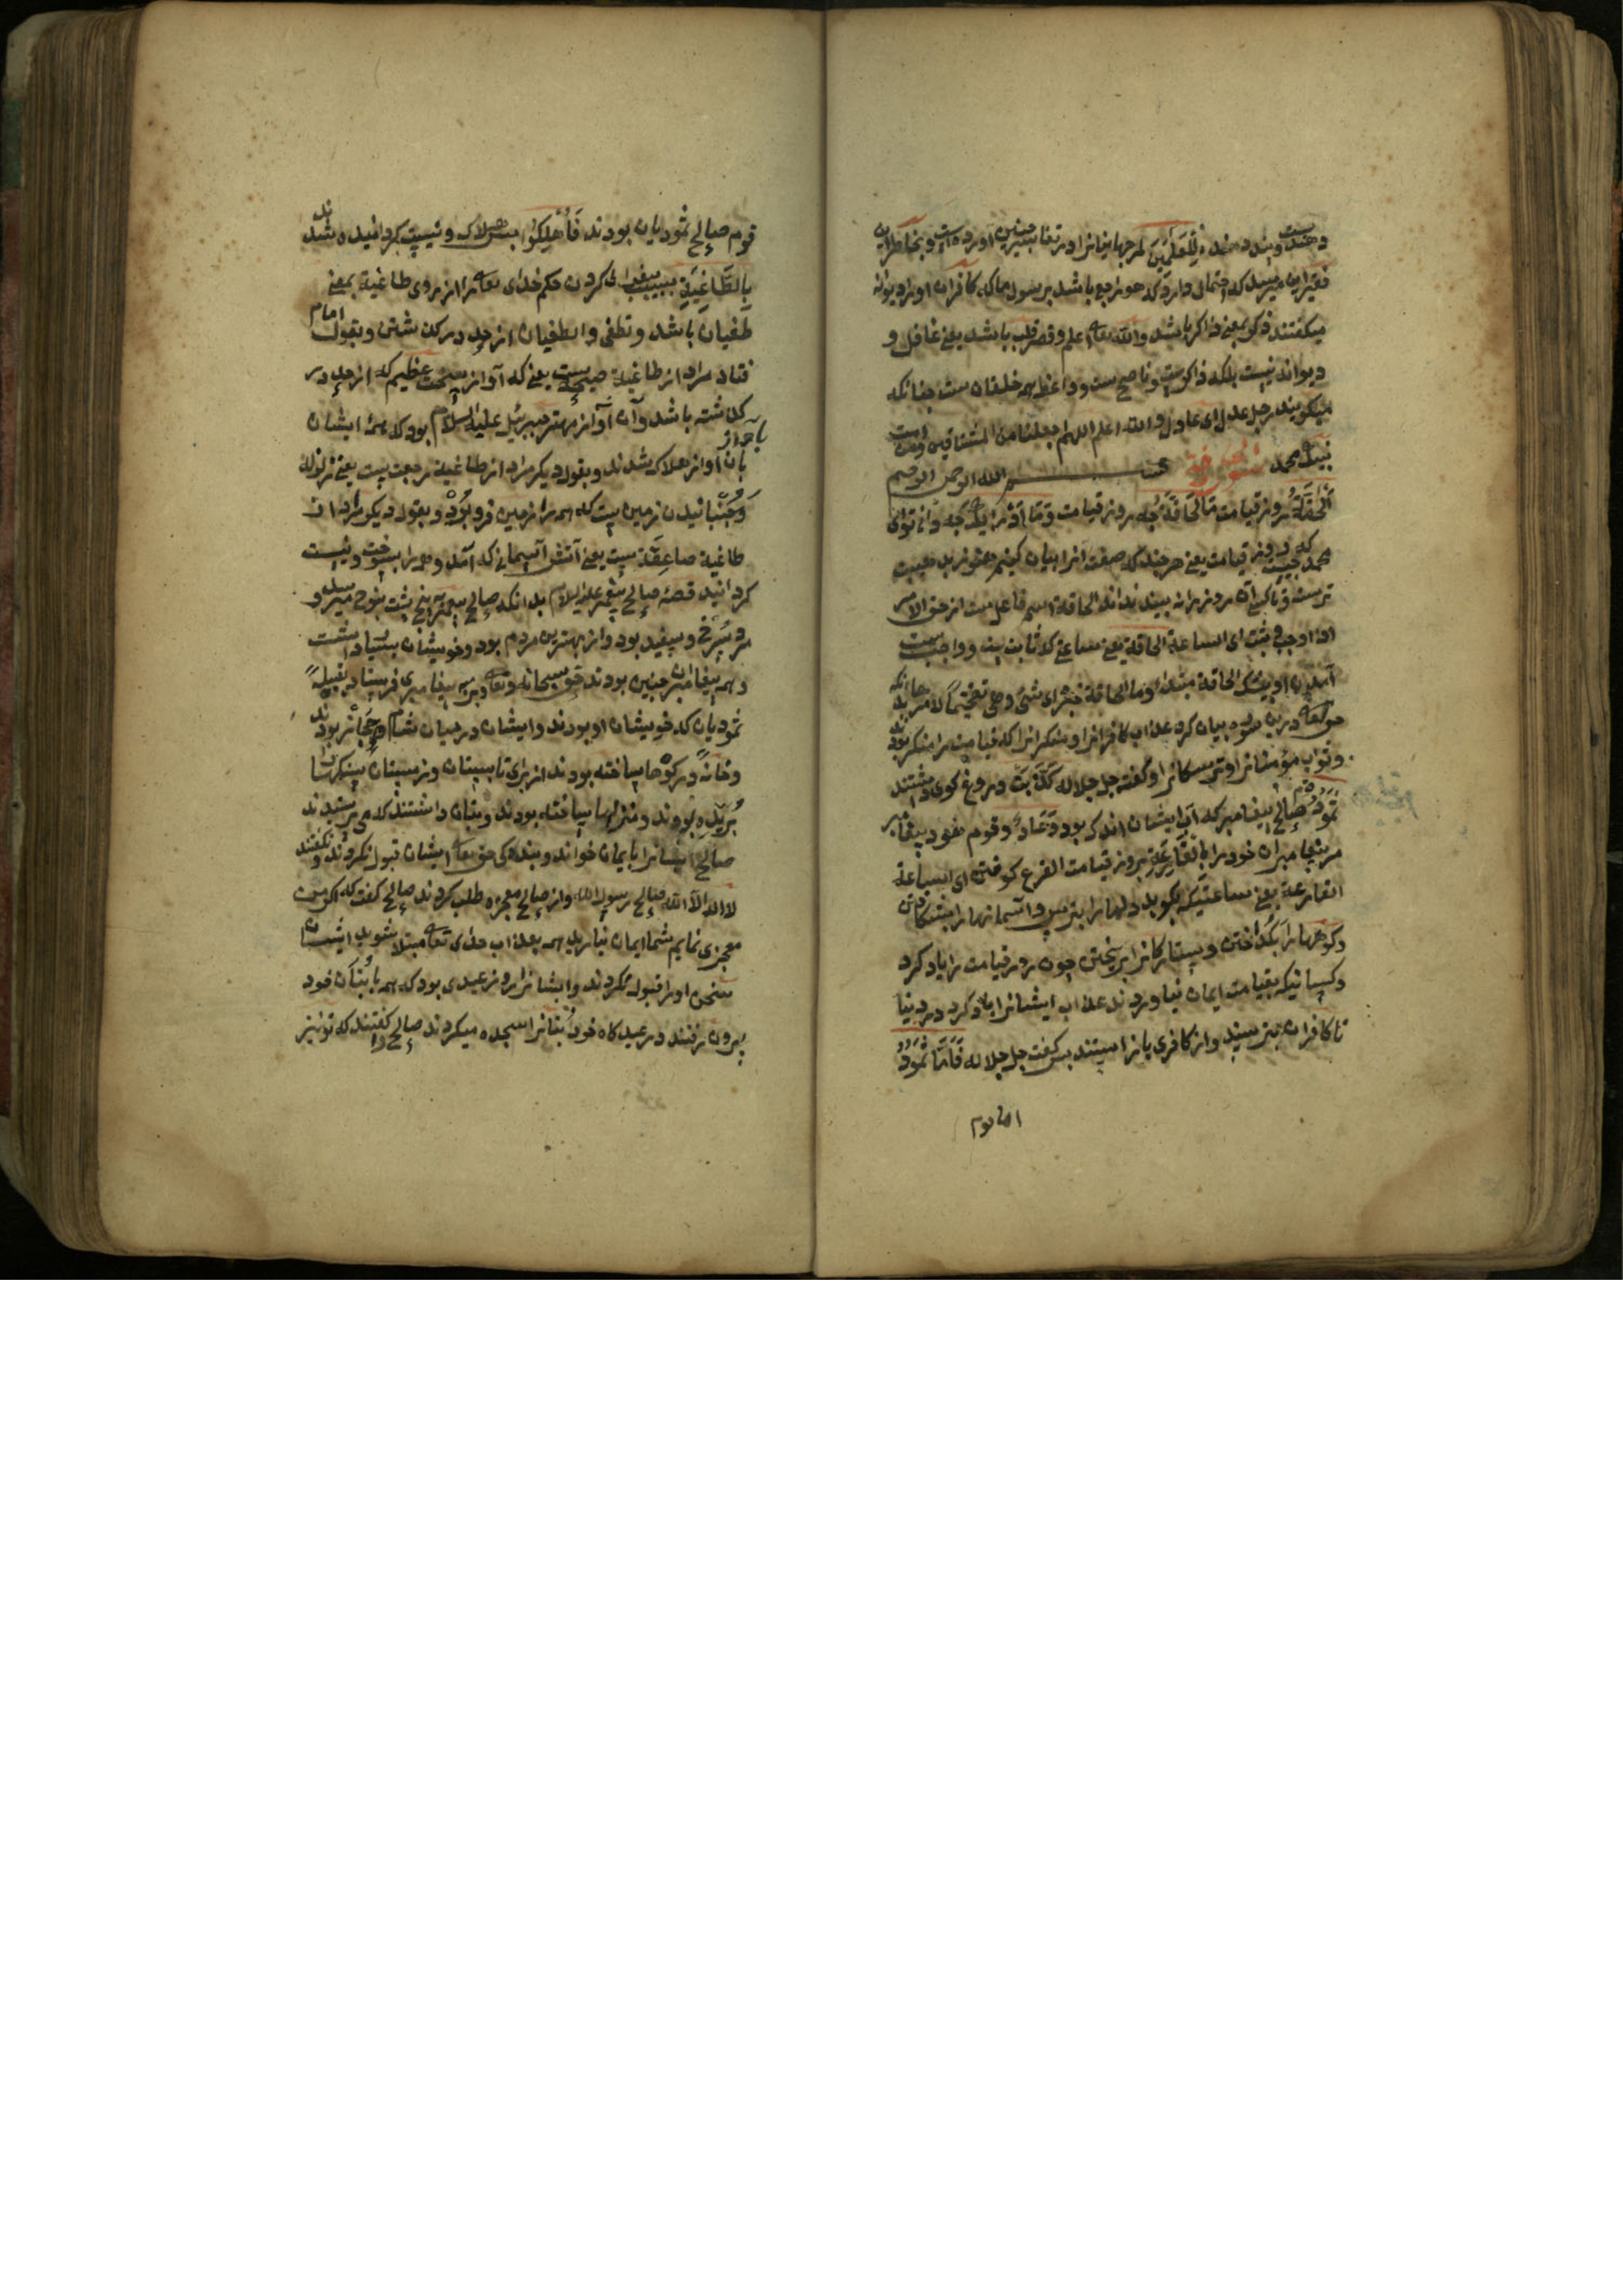 دهنده است و پند دهنده للعلمین مر جهانیانرا در تفاسیر چنین اورده است و بخاطر این
فقیر این میرسد که احتمال دارد که هو راجع باشد بر رسول ما که کافران او را دیوانه
میکفتند ذکر بمعنی ذاکر باشد والله تعالی اعلم و قصر قلب باشد یعنی غافل و
دیوانه نیست بلکه ذاکرست و ناصح ست و واعظ همه خلقان ست چنانکه
میکویند رجل عدل ای عادل والله اعلم اللهم اجعلنا من المشتاقین
نبیک محمد سورة الحاقة بسم الله الرحمن الرحیم
اَلحَاقَّةُ روز قیامت مَا الحَاقَّةُ چه روز قیامت وَمَا اَدْرٰیکَ چه دانی تو ای
محمد که چیست روز قیامت یعنی هر چند که صفت انرا بیان کنیم هنوز بد هیبت
ترست و تا کسی آن روز را نه بیند نداند الحاقة اسم فاعل ست از حق الامر
اذا وجب و ثبت ای الساعة الحاقة یعنی ساعتی که ثابت ست و واجب ست
آمدن او الحاقة مبتدا و ما الحاقة خبر ای شیٔ هی تفخیما لامرها بدانکه
حق تعالی درین سوره بیان کرد عذاب کافرانرا و منکرانرا که قیامت را منکر بودند
و ثواب مؤمنانرا و ترسکانرا و کفت جل جلاله کَذَّبَتْ دروغ کوی داشتند
ثَمُودُ قوم صالح پیغامبر که آب ایشان اندک بود وَعَادٌ و قوم هود پیغامبر
مر پیغامبران خود را بِالْقَارِعَةِ بروز قیامت القرع کوفتن ای الساعة
القارعة یعنی ساعتیکه بکوبد دلها را بترس و آسمانها را بشکافتن
و کوهها را بکداختن و ستارکانرا بریختن چون روز قیامت را یاد کرد
و کسانیکه بقیامت ایمان نیاوردند عذاب ایشانرا یاد کرد در دنیا
تا کافران بترسند و از کافری باز ایستند پس کفت جل جلاله فَاَمَّا ثَمُودُ
اما قوم
قوم صالح ثمودیان بودند فَاُهْلِکُوا پس هلاک و نیست کردانیده شدند
بِالطَّاغِیَةِ بسبب بی فرمانی کردن حکم خدای تعالی را از روی طاغیة بمعنی
طغیان باشد و تطغی و الطغیان از حد در کذشتن و بقول امام
قتاده مراد از طاغیة صیحه است یعنی که آواز سخت عظیم که از حد در
کذشته باشد و آن آواز مهتر جبرئیل علیه السلام بود که همهٔ ایشان
بان آواز هلاک شدند و بقول دیکر مراد از طاغیة رجعت ست یعنی زلزله
و جنبانیدن زمین ست که همه را زمین فرو بُرْد و بقول دیکر مراد از
طاغیة صاعقة ست یعنی آتش آسمانی که آمد و همه را بسوخت و نیست
کردانید قصهٔ صالح پیغمبر علیه السلام بدانکه صالح پیغمبر به پنج پشت بنوح میرسد و
مرد سرخ و سپید بود و از بهترین مردم بود و خویشان بسیار داشت
و همه پیغامبران چنین بودند حق سبحانه و تعالی ویرا پیغامبری فرستاد بقبیلهٔ
ثمودیان که خویشان او بودند و ایشان در میان شام و حجاز بودند
و خانه در کوها ساخته بودند از برای تابستان و زمستان سنکها را
بُریده بودند و منزلها ساخته بودند و بتان داشتند که می پرستیدند
صالح ایشانرا بایمان خواند و بندهکی حق تعالی ایشان قبول نکردند و نکفتند
لا اله الا الله صالح رسول الله و از صالح معجزه طلب کردند صالح کفت که اکر من
معجزی نمایم شما ایمان نیارید همه بعذاب خدای تعالی مبتلا شوید ایشان
سخن او را قبول نکردند و ایشانرا روز عیدی بود که همه با بُتان خود
بیرون رفتند در عیدکاه خود بُتانرا سجده میکردند صالح را کفتند که تو نیز